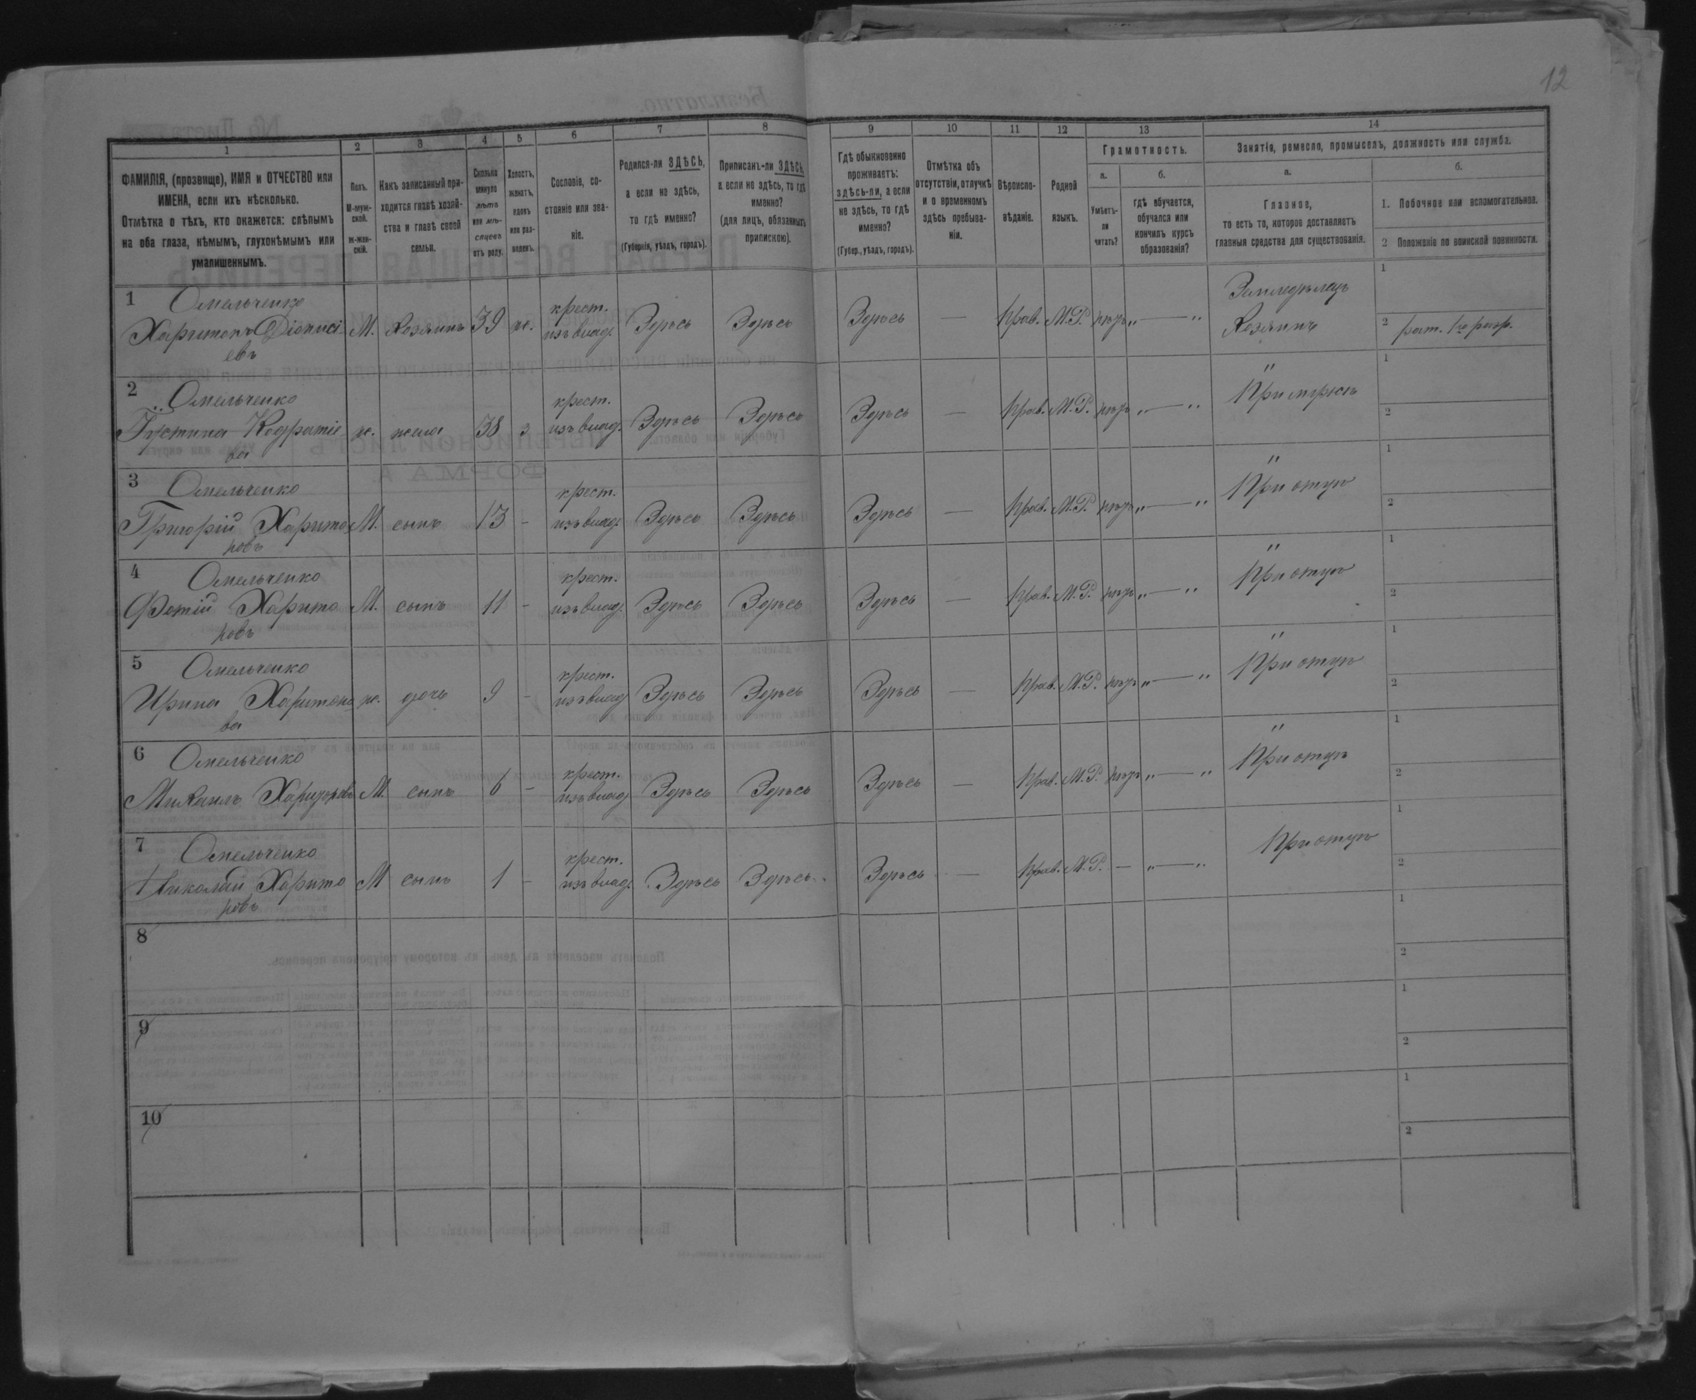 12
1
2
3
4
5
6
7
8
9
10
11
12
13
14
ФАМИЛІЯ, (прозвище), ИМЯ и ОТЧЕСТВО или
ИМЕНА, если ихъ нѣсколько.
Отмѣтка о тѣхъ, кто окажется: слѣпымъ
на оба глаза, нѣмымъ, глухонѣмымъ или
умалишеннымъ.
Полъ.
М-муж-
ской.
ж-жен-
скій.
Какъ записанный при-
ходится главѣ хозяй-
ства и главѣ своей
семьи.
Сколько
минуло
лѣтъ
или мѣ-
сяцевъ
отъ роду.
Холостъ,
женатъ,
вдовъ
или раз-
веденъ.
Сословіе, со-
стояніе или зва-
ніе.
Родился-ли ЗДѢСЬ,
а если не здѣсь,
то гдѣ именно?
(Губернія, уѣздъ, городъ).
Приписанъ-ли ЗДѢСЬ,
а если не здѣсь, то гдѣ
именно?
(для лицъ, обязанныхъ
припискою).
Гдѣ обыкновенно
проживаетъ:
здѣсь-ли, а если
не здѣсь, то гдѣ
именно?
(Губер., уѣздъ, городъ).
Отмѣтка объ
отсутствіи, отлучкѣ
и о временномъ
здѣсь пребыва-
ніи.
Вѣроиспо-
вѣданіе.
Родной
языкъ.
Грамотность.
а.
б.
Умѣетъ-
ли
читать?
гдѣ обучается,
обучался или
кончилъ курсъ
образованія?
Занятія, ремесло, промыселъ, должность или служба.
а.
б.
Главное,
то есть то, которое доставляетъ
главныя средства для существованія.
1. Побочное или вспомогательное.
2 Положеніе по воинской повинности.
1 Омельченко
Харитонъ Діонисі
евъ
М. хозяинъ 39 ж. крест.
изъ влад. Здѣсь Здѣсь Здѣсь — Прав. М.Р. нѣтъ „ — „ Земледѣлецъ
Хозяинъ 1
2 рат. 1го разр.
2 Омельченко
Густина Кодратіе
ва
ж. жена 38 з крест.
изъ влад. Здѣсь Здѣсь Здѣсь — Прав. М.Р. нѣтъ „ — „ „
При мужѣ 1
2
3 Омельченко
Григорій Харито
новъ
М. сынъ 13 - крест.
изъ влад. Здѣсь Здѣсь Здѣсь — Прав. М.Р. нѣтъ „ — „ „
При отцѣ 1
2
4 Омельченко
Фотій Харито
новъ
М. сынъ 11 - крест.
изъ влад. Здѣсь Здѣсь Здѣсь — Прав. М.Р. нѣтъ „ — „ „
При отцѣ 1
2
5 Омельченко
Ирина Харитоно
ва
ж. дочь 9 - крест.
изъ влад Здѣсь Здѣсь Здѣсь — Прав. М.Р. нѣтъ „ — „ „
При отцѣ 1
2
6 Омельченко
Михаилъ
М. сынъ 6 - крест.
изъ влад Здѣсь Здѣсь Здѣсь — Прав. М.Р. нѣтъ „ — „ „
При отцѣ 1
2
7 Омельченко
Николай Харито
новъ
М сынъ 1 - крест.
изъ влад. Здѣсь Здѣсь Здѣсь — Прав. М.Р. — „ — „ При отцѣ 1
2
8
1
2
9
1
2
10
1
2